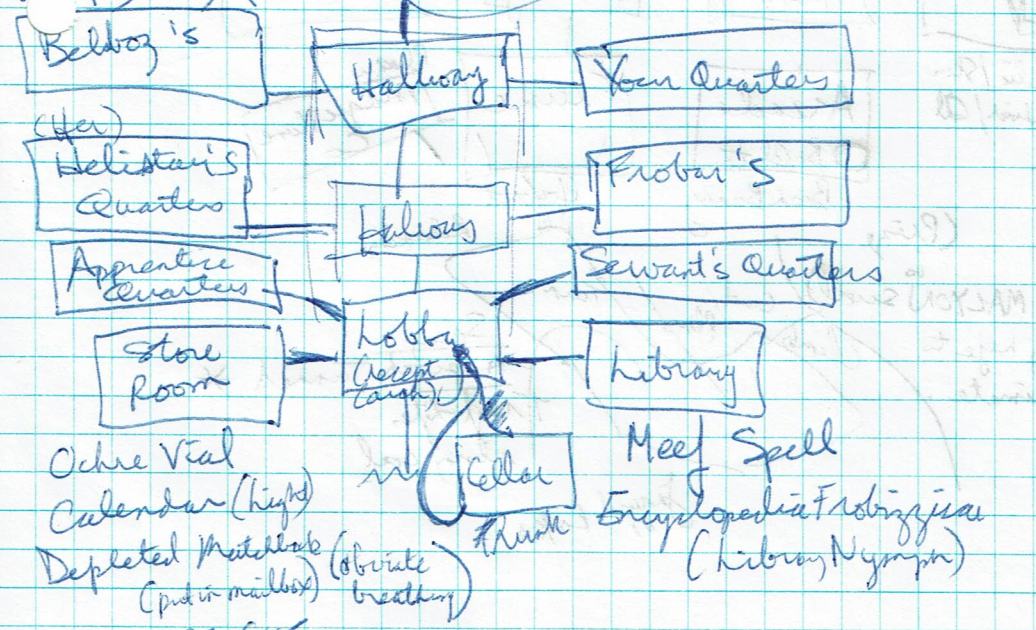 Belboz's
Hallway
Your Quarters
(Her)
Helistar's
Quarters
Frobar's
Hallway
Apprentice
Quarters
Servant's Quarters
Lobby
Store
Room
Library
Cellar
Trunk
Ochre Vial
Calendar (hight)
Depleted Matchbook
(put in mailbox)
(obviate
breathing)
Meef Spell
Encyclopedia Frobizzica
(Library Nymph)